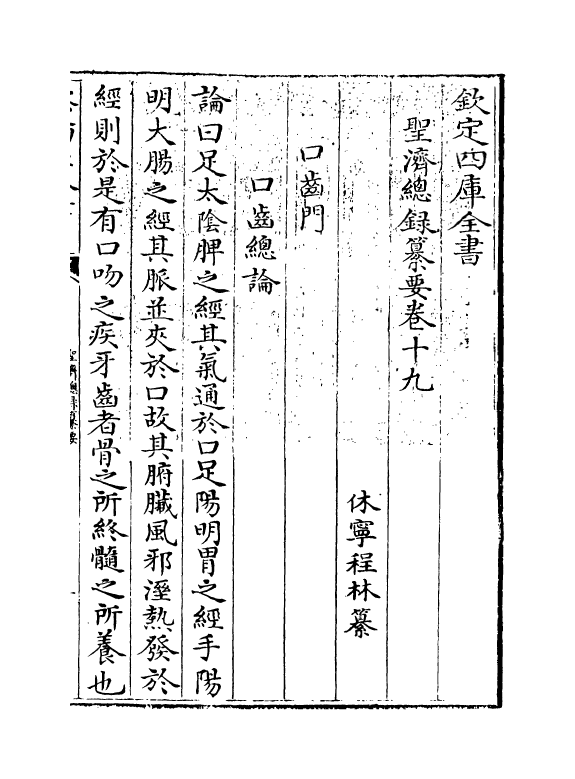 欽定四庫全書
聖濟總録纂要卷十九
休寧程林纂
口齒門
口齒總論
論曰足太陰脾之經其氣通於口足陽明胃之經手陽
明大腸之經其脈並夾於口故其腑臟風邪溼熱發於
經則於是有口吻之疾牙齒者骨之所終髓之所養也